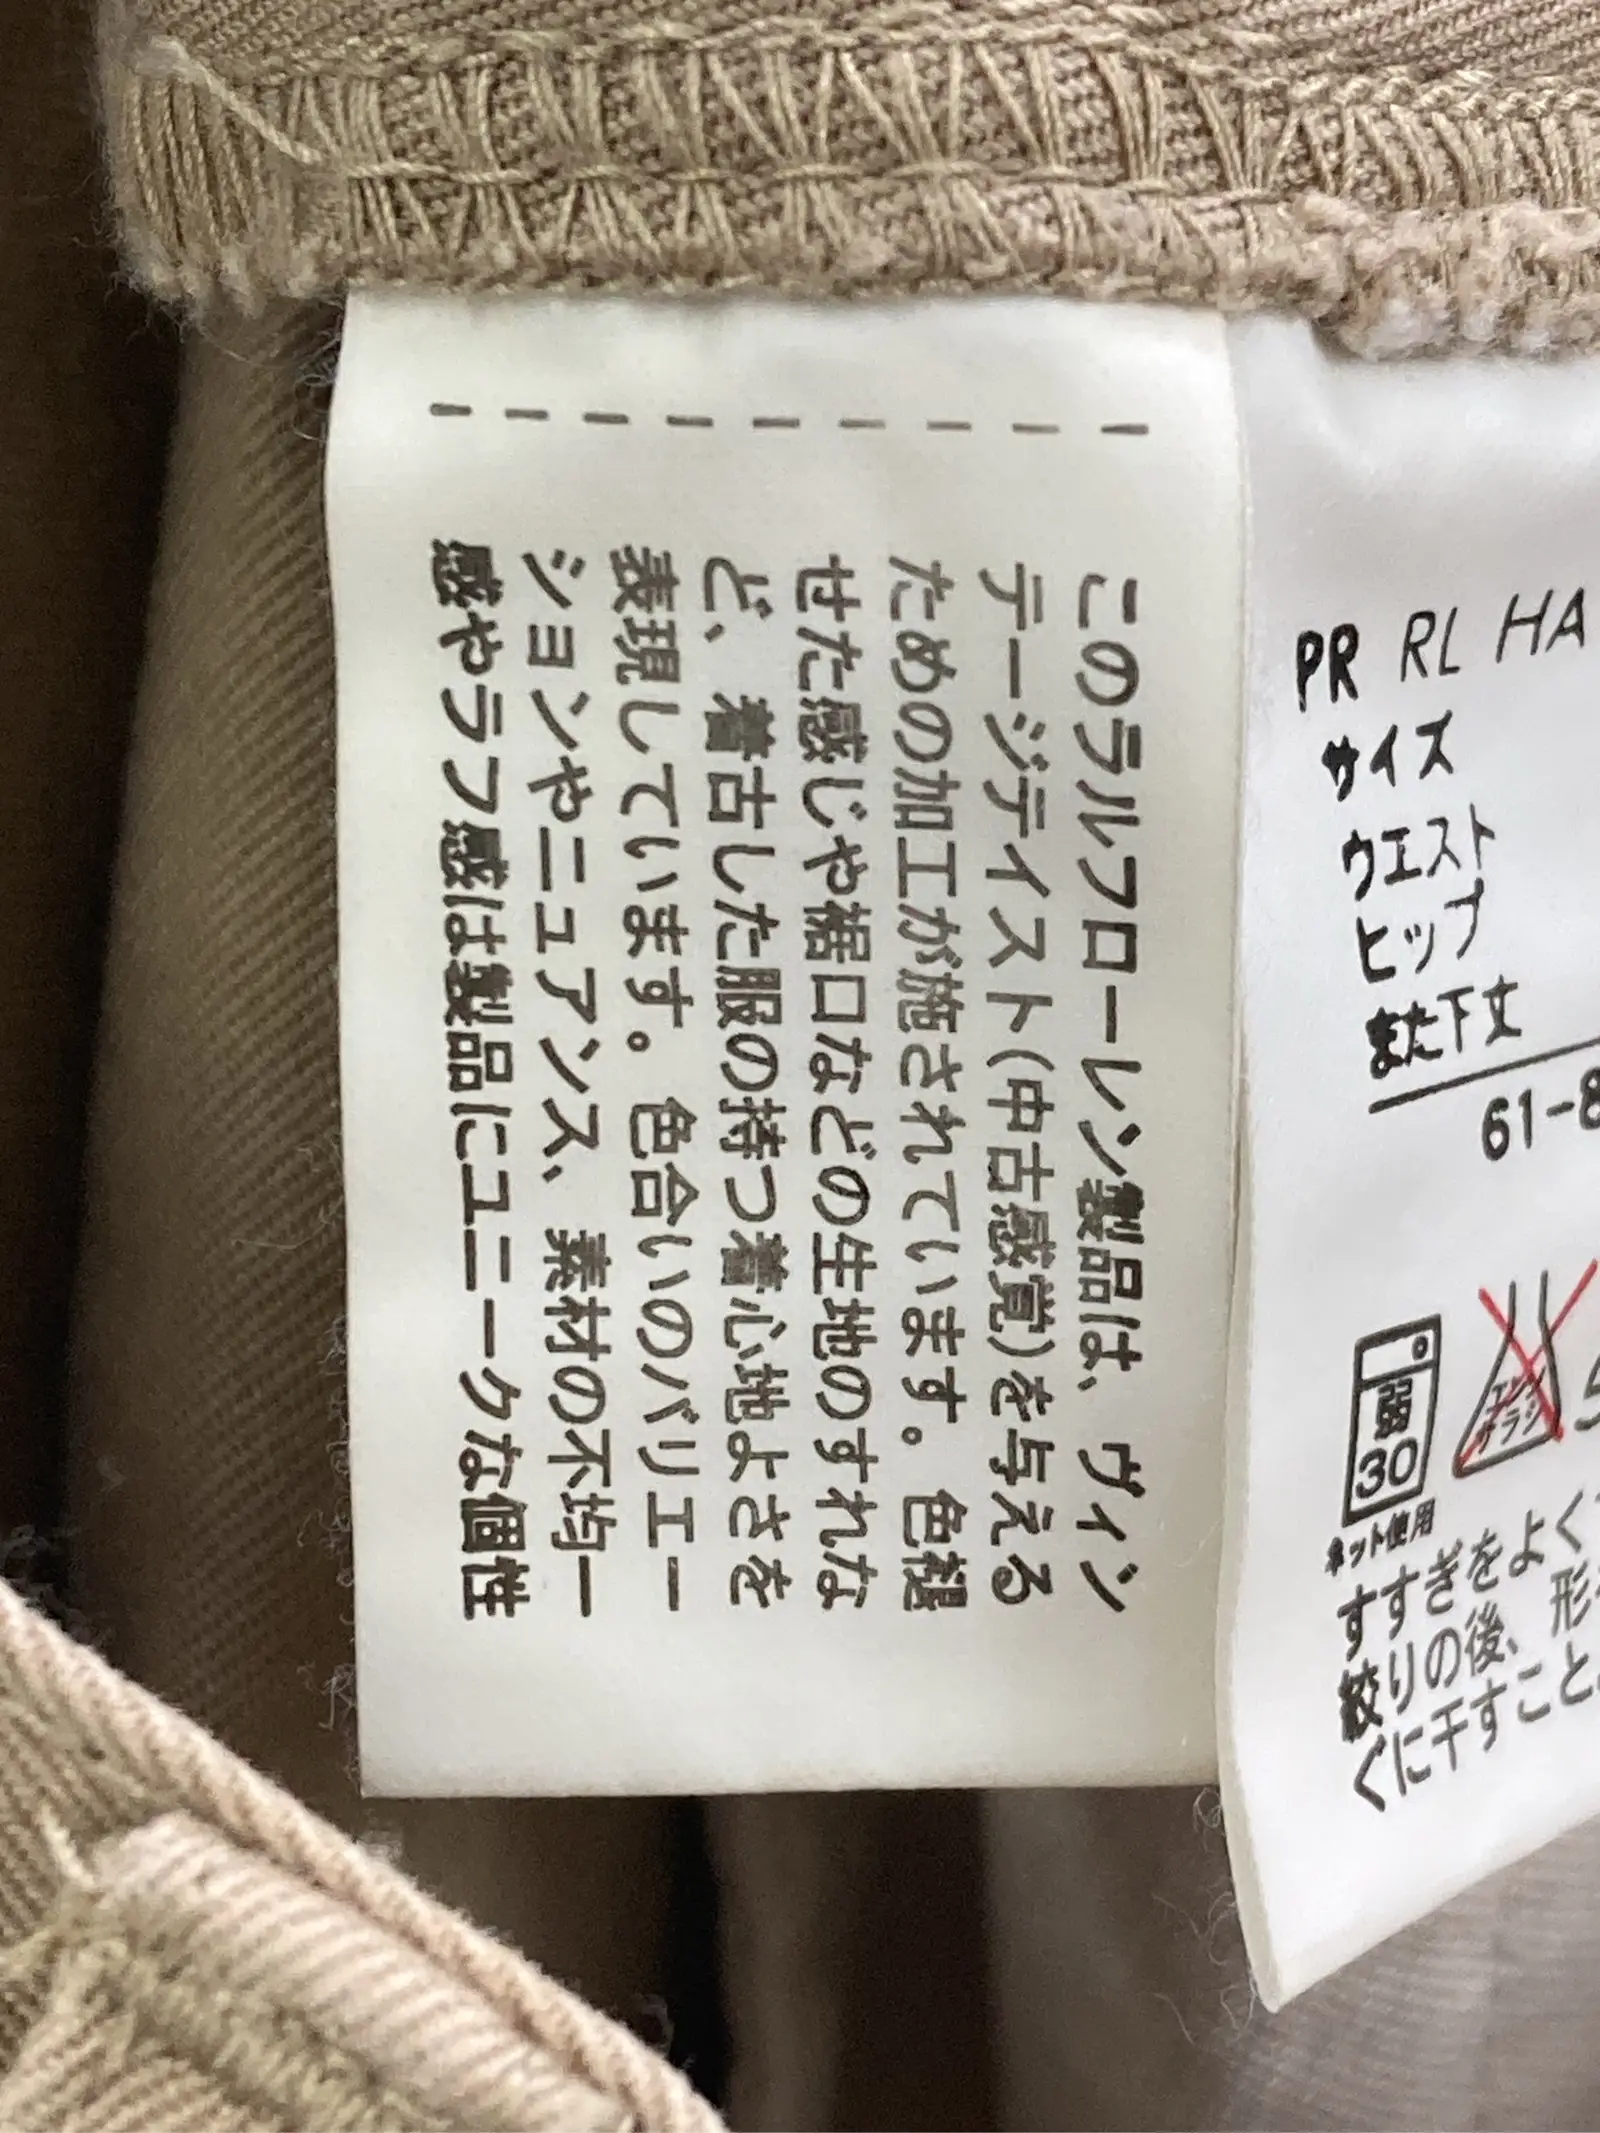 このラルフローレン製品は、ヴィン
テージテイスト(中古感覚)を与える
ための加工が施されています。色褪
せた感じや裾口などの生地のすれな
ど、着古した服の持つ着心地よさを
表現しています。色合いのバリエー
ションやニュアンス、素材の不均一
感やラフ感は製品にユニークな個性
PR RL HA
サイズ
ウエスト
ヒップ
また下丈
61-8
弱
30
エンソ
サラシ
ネット使用
すすぎをよく
絞りの後、形
ぐに干すこと